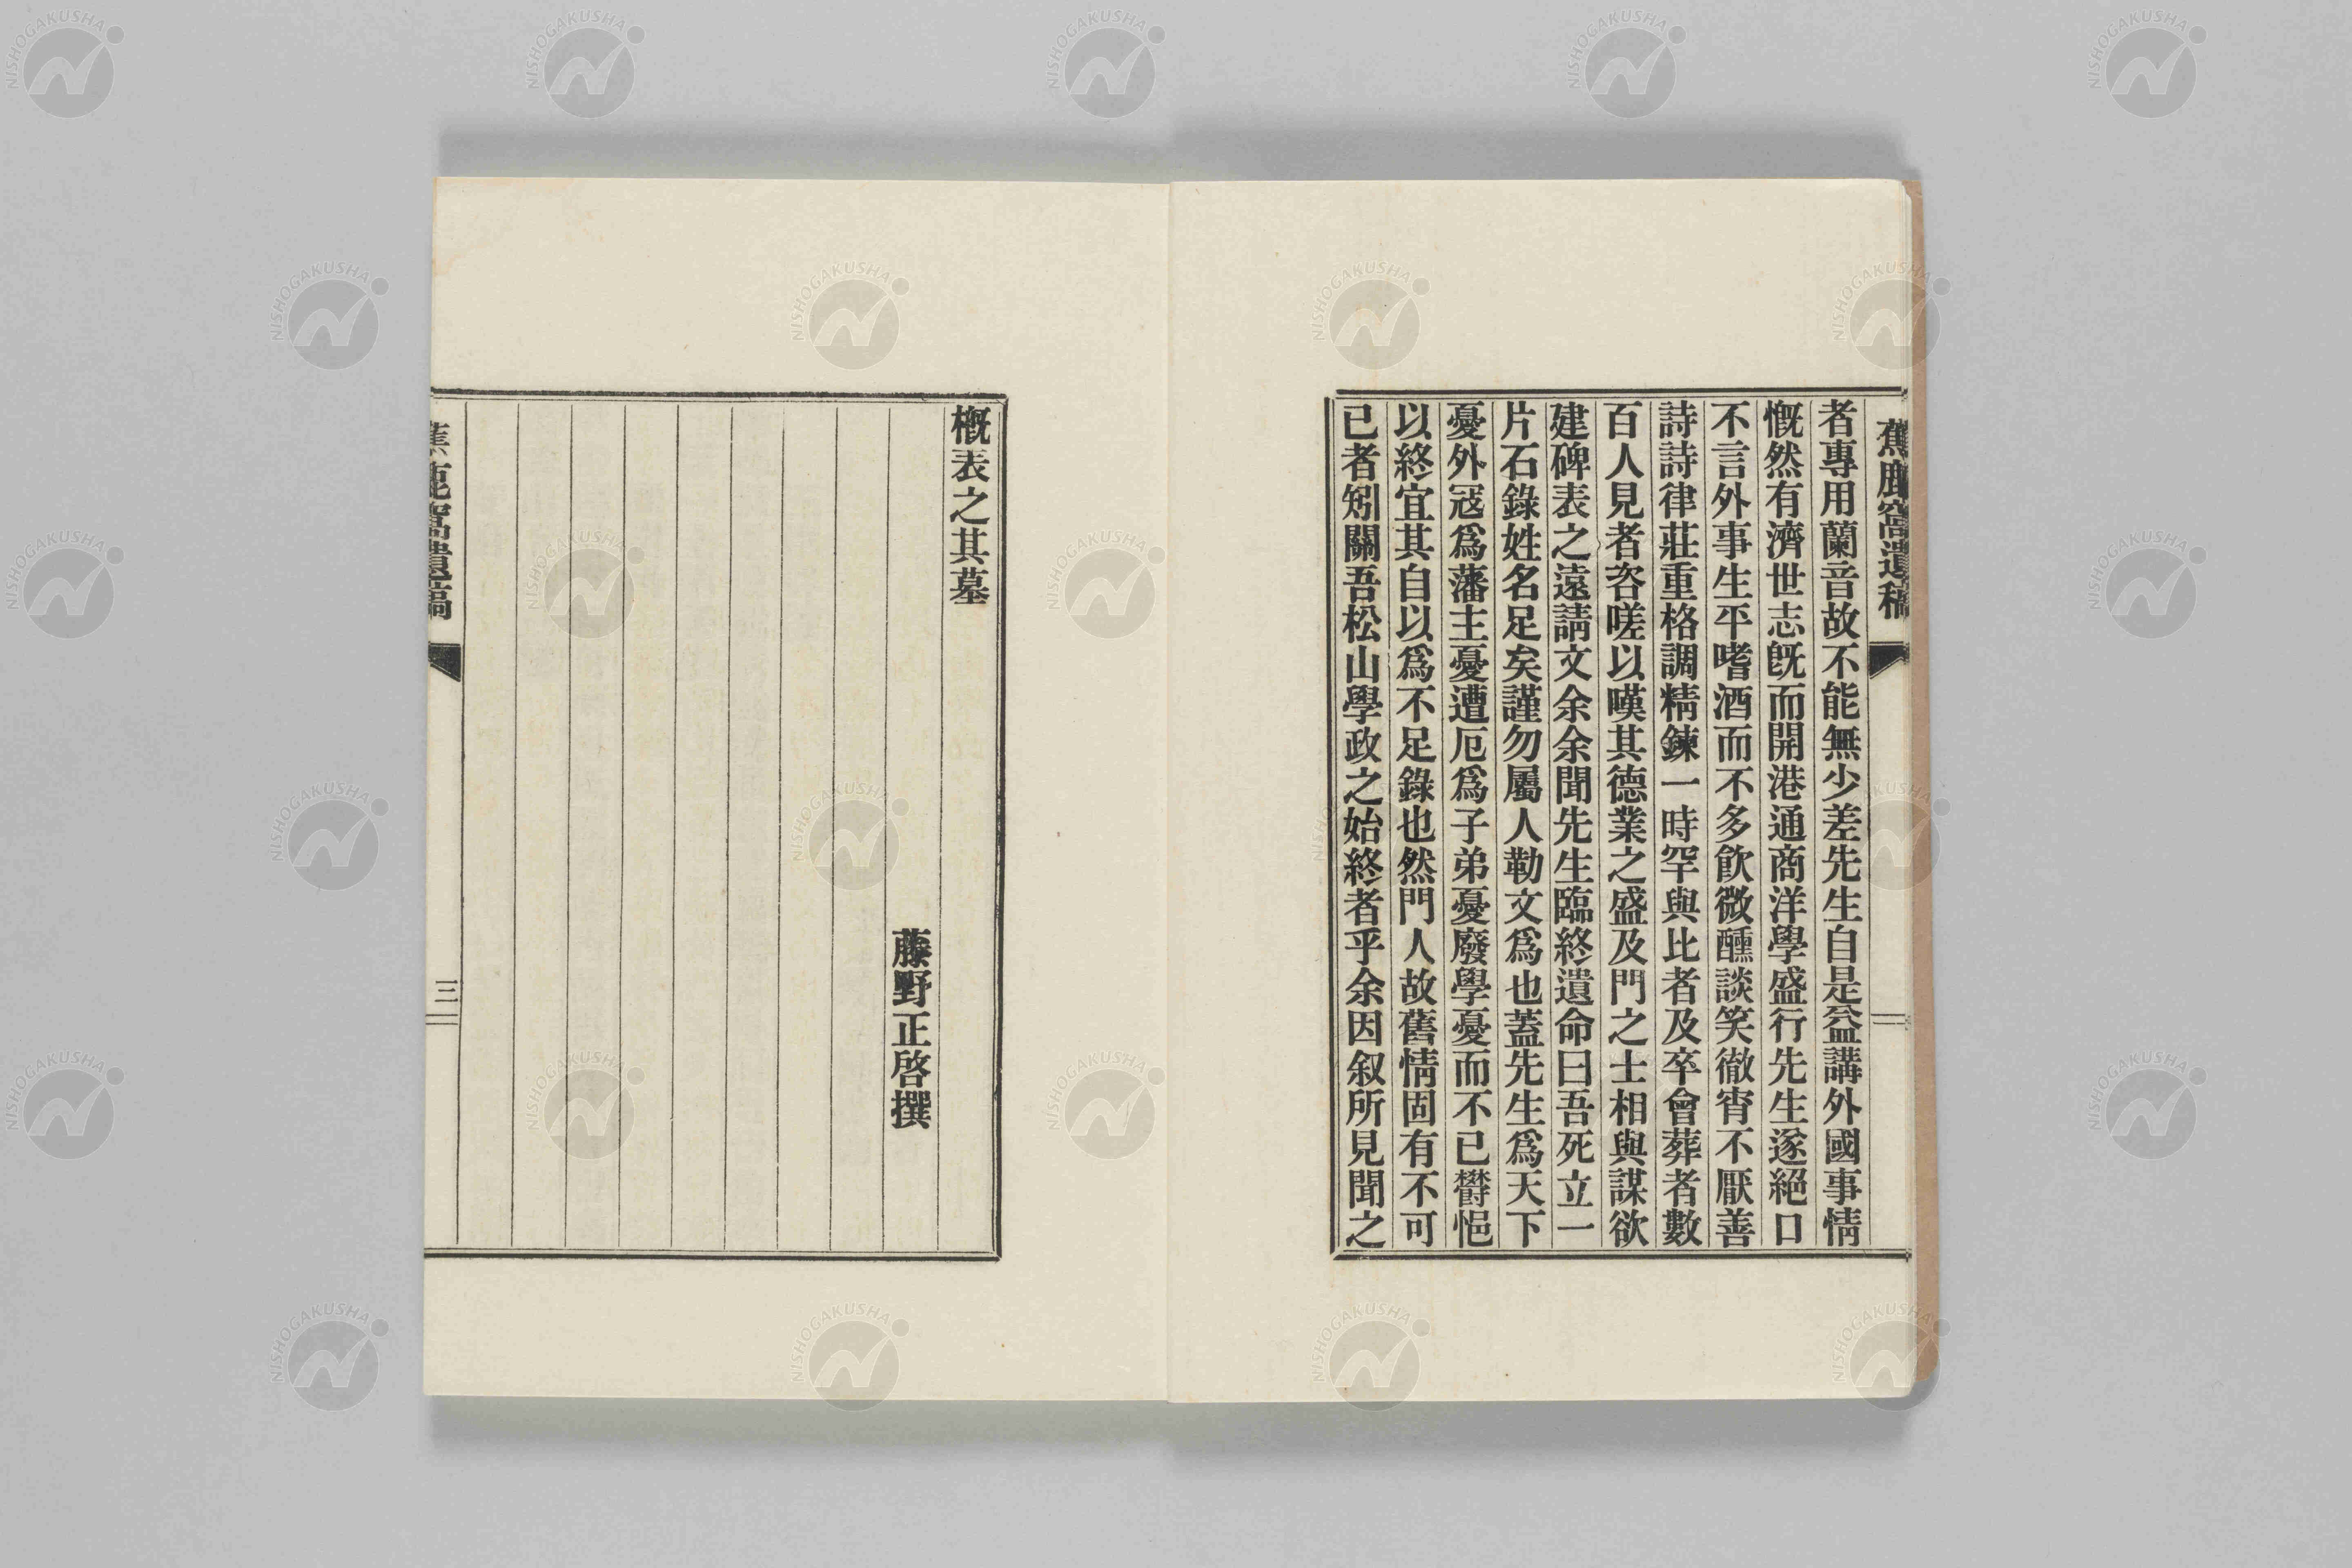 蕉鹿窩遺稿
二
者專用蘭音故不能無少差先生自是益講外國事情
慨然有濟世志旣而開港通商洋學盛行先生遂絕口
不言外事生平嗜酒而不多飮微醺談笑徹宵不厭善
詩詩律莊重格調精鍊一時罕與比者及卒會葬者數
百人見者咨嗟以嘆其德業之盛及門之士相與謀欲
建碑表之遠請文余余聞先生臨終遺命曰吾死立一
片石錄姓名足矣謹勿屬人勒文爲也蓋先生爲天下
憂外冦爲藩主憂遭厄爲子弟憂廢學憂而不已欝悒
以終宜其自以爲不足錄也然門人故舊情固有不可
已者矧關吾松山學政之始終者乎余因叙所見聞之
槪表之其墓
藤野正啓撰
蕉鹿窩遺稿
三
NISHOGAKUSHA